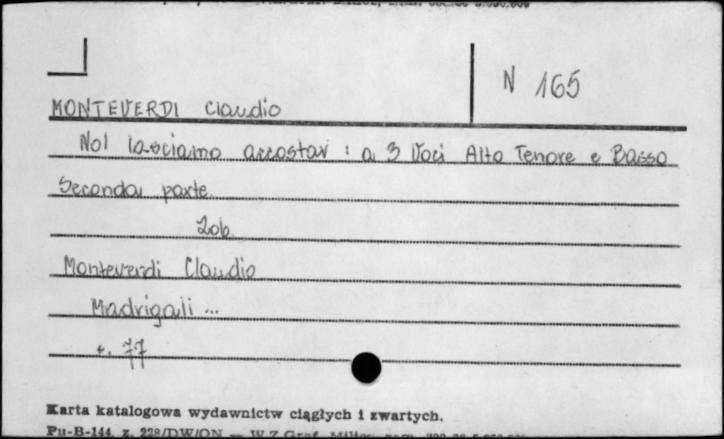 N 165
MONTEVERDI Claudio
Nol lasciamo accostar : a 3 Voci Alto Tenore e Basso
Seconda parte.
Zob.
Monteverdi Claudio
Madrigali ...
s. 77
Karta katalogowa wydawnictw ciągłych i zwartych.
Pu-B-144, z. 228/DW/ON — W.Z.Graf.